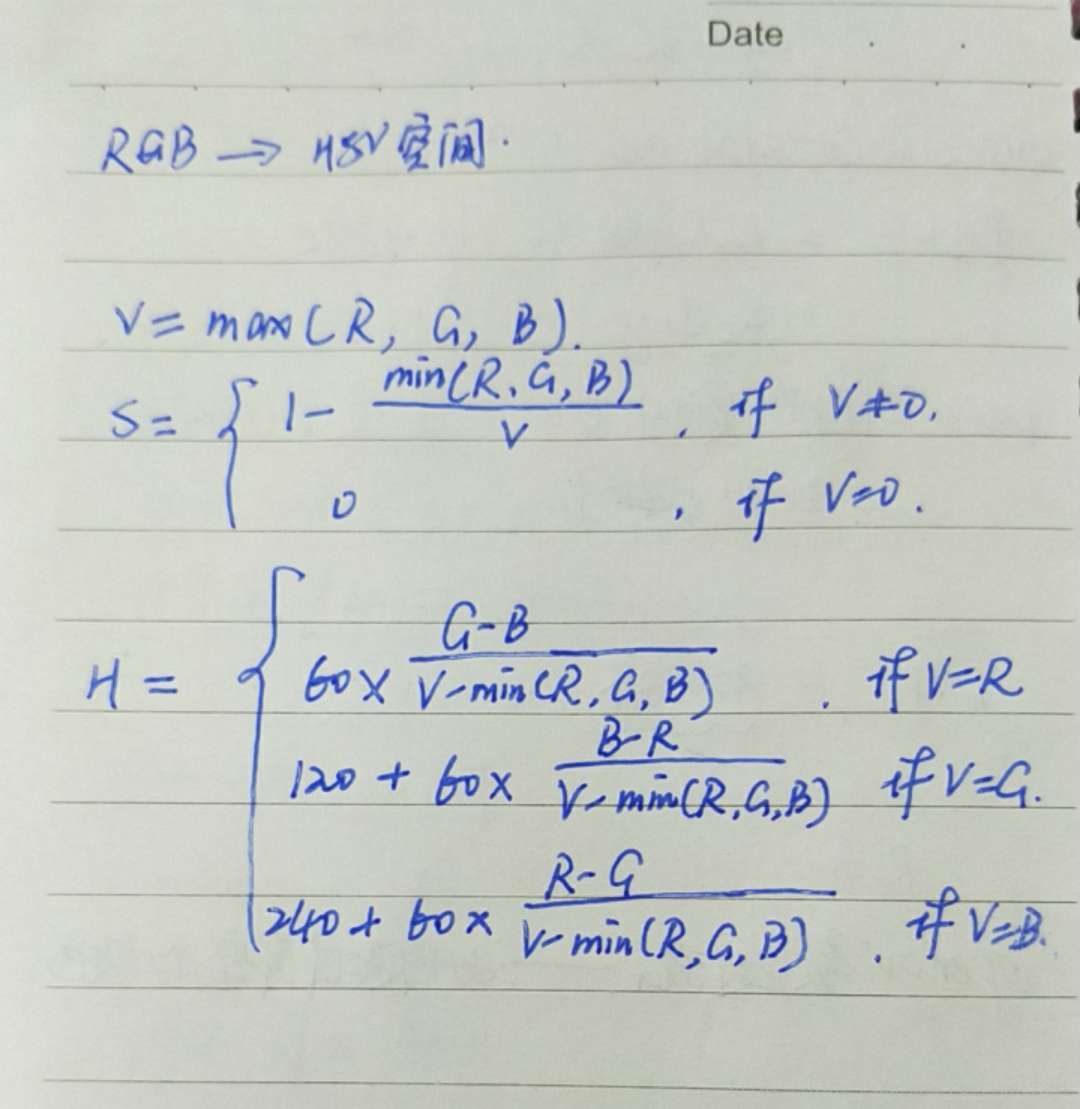 Date
RGB → HSV空间.
V = max(R, G, B).
S = { 1 - min(R, G, B) / V , if V≠0.
0 , if V=0.
H = { 60 × (G-B) / (V-min(R, G, B)) , if V=R
120 + 60 × (B-R) / (V-min(R,G,B)) if V=G.
240 + 60 × (R-G) / (V-min(R,G,B)) , if V=B.